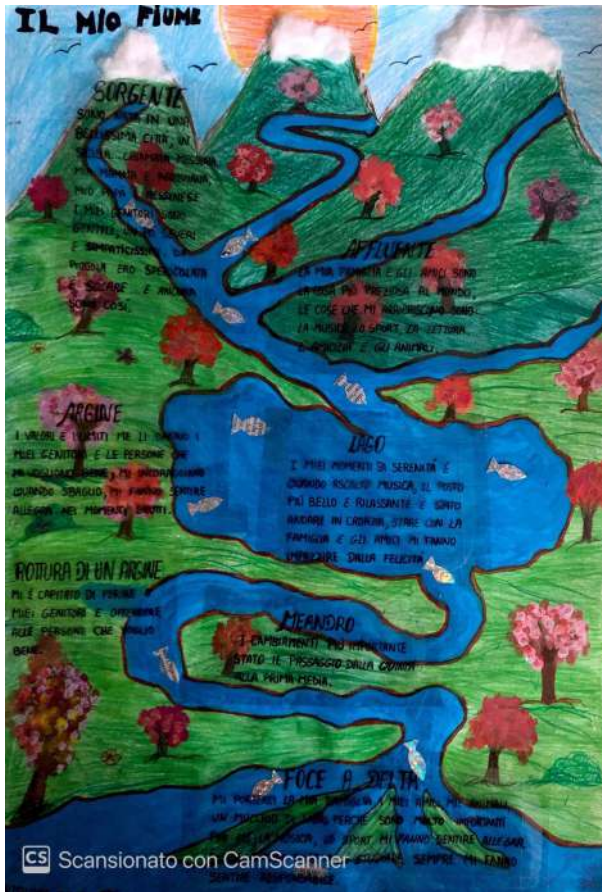 IL MIO FIUME
SORGENTE
SONO NATA IN UNA
BELLISSIMA CITTÀ, IN
SICILIA CHIAMATA MESSINA
MIA MAMMA È
MIO PAPÀ È MESSINESE
I MIEI GENITORI SONO
GENTILI,
E SIMPATICISSIMI DA
PICCOLA ERO SPERICOLATA
E ANCORA
SONO COSÌ.
AFFLUENTE
LA MIA FAMIGLIA E GLI AMICI SONO
LA COSA PIÙ PREZIOSA AL MONDO,
LE COSE CHE MI ARRICCHISCONO SONO:
LA MUSICA LO SPORT, LA LETTURA
L'AMICIZIA E GLI ANIMALI.
ARGINE
I VALORI E I LIMITI ME LI DANNO I
MIEI GENITORI E LE PERSONE CHE
MI VOGLIONO BENE, MI INCORAGGIANO
QUANDO SBAGLIO, MI FANNO SENTIRE
ALLEGRA NEI MOMENTI
LAGO
I MIEI MOMENTI DI SERENITÀ È
QUANDO ASCOLTO MUSICA, IL POSTO
PIÙ BELLO E RILASSANTE È STATO
ANDARE IN CROAZIA, STARE CON LA
FAMIGLIA E GLI AMICI MI FANNO
IMPAZZIRE DALLA FELICITÀ
ROTTURA DI UN ARGINE
MI È CAPITATO DI
MIEI GENITORI E
ALLE PERSONE CHE VOGLIO
BENE.
MEANDRO
I CAMBIAMENTI PIÙ IMPORTANTE
STATO IL PASSAGGIO DALLA QUINTA
ALLA PRIMA MEDIA.
FOCE A DELTA
MI PORTEREI LA MIA FAMIGLIA I MIEI AMICI MIEI ANIMALI,
UN MUCCHIO DI PERCHÉ SONO MOLTO IMPORTANTI
PER ME LA MUSICA, LO SPORT MI FANNO SENTIRE ALLEGRA,
SEMPRE MI FANNO
SENTIRE RESPONSABILE
CS Scansionato con CamScanner